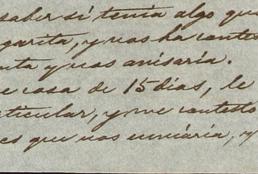 saber si tenia algo que
garita, y nos ha contes
nta y nos avisaria.
e casa de 15 dias, le
ticular, y me contesto
es que nos enviaria, y